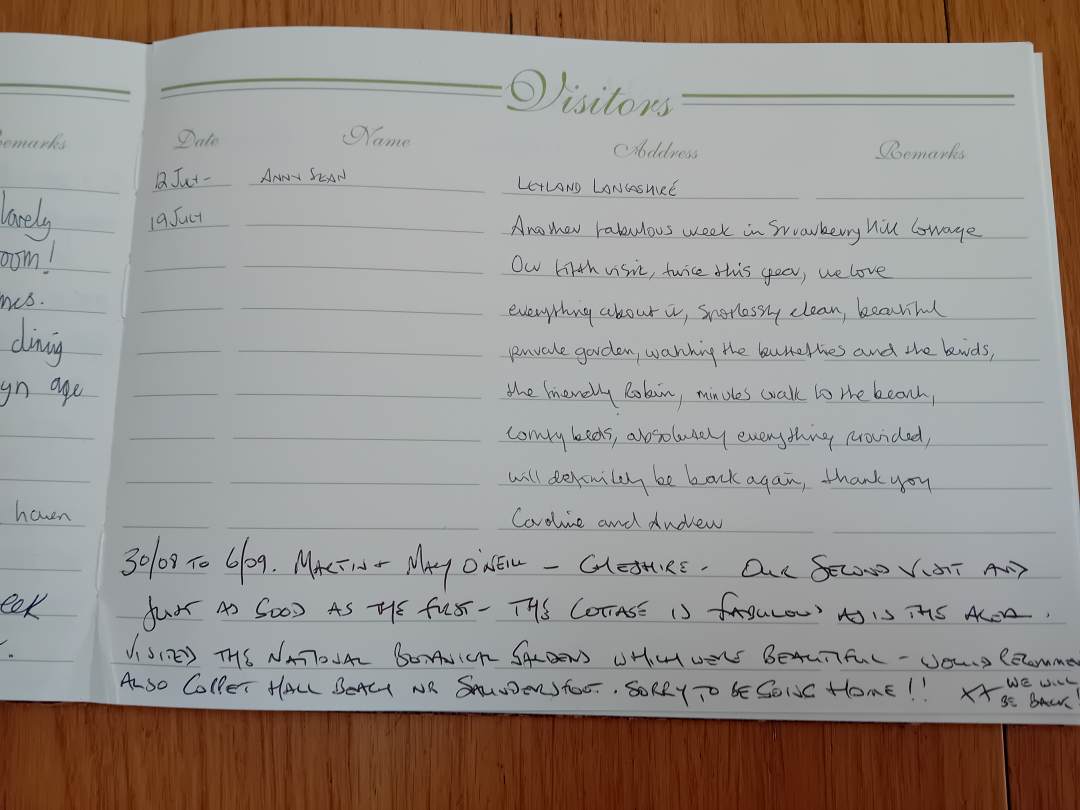 Visitors
Remarks
lovely
room!
dining
haven
Date Name Address Remarks
12 July - ANNY SEAN LEYLAND LANCASHIRE
19 July
Another fabulous week in Strawberry Hill Cottage
Our fifth visit, twice this year, we love
everything about it, spotlessly clean, beautiful
private garden, watching the butterflies and the birds,
the friendly Robin, minutes walk to the beach,
comfy beds, absolutely everything provided,
will definitely be back again, thank you
Caroline and Andrew
30/08 TO 6/09. MARTIN + MARY O'NEILL - CHESHIRE - OUR SECOND VISIT AND
JUST AS GOOD AS THE FIRST - THE COTTAGE IS FABULOUS AS IS THE AREA.
VISITED THE NATIONAL BOTANICAL GARDENS WHICH WERE BEAUTIFUL - WOULD RECOMMEN
ALSO COPPET HALL BEACH NR SAUNDERSFOOT. SORRY TO BE GOING HOME!! XX WE WILL
BE BACK!